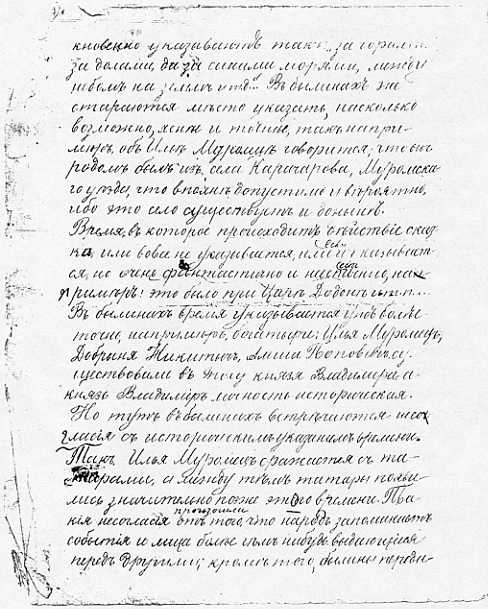 кновенно указываютъ такъ: за горами
за долами, да за синими морями, между
небомъ на землѣ итд." Въ былинахъ же
стараются мѣсто указать, насколько
возможно, яснѣе и точнѣе, такъ напри-
мѣръ, объ Ильѣ Муромцѣ говорится, что онъ
родомъ былъ изъ села Карачарова, Муромска-
го уѣзда, что вполнѣ допустимо и вѣроятно,
ибо это село существуетъ и донынѣ.
Время, въ которое происходитъ дѣйствіе сказ-
ки, или вовсе не указывается, или если и указывает-
ся, но очень фантастично и
примѣръ: это было при Царѣ Додонѣ и т.п.
Въ былинахъ время указывается уже болѣе
точно, напримѣръ, богатыри: Илья Муромецъ,
Добрыня Никитичъ, Алеша Поповичъ, су-
ществовали въ эпоху князя Владимира, а
князь Владимиръ личность историческая.
Но тутъ въ былинахъ встрѣчаются несо-
гласія съ историческимъ указаніемъ времени.
Такъ Илья Муромецъ сражается съ та-
тарами, а между тѣмъ татары появи-
лись значительно позже этого времени. Та-
кія несогласія произошли отъ того, что народъ запоминаетъ
событія и лица болѣе чѣмъ нибудь выдающіяся
передъ другими; кромѣ того, былины